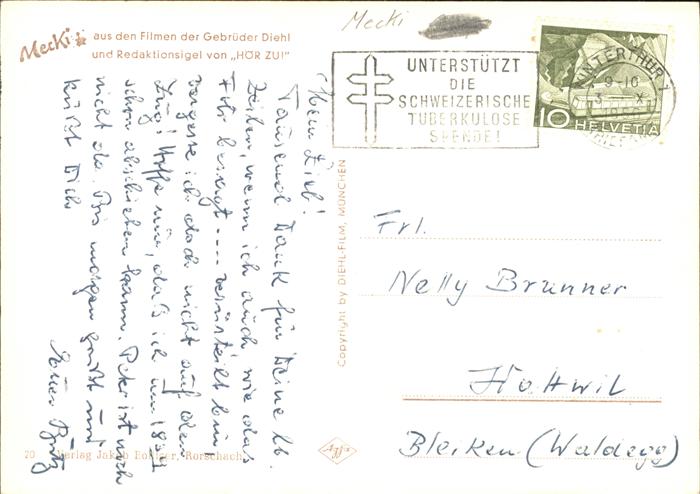 Mecki
aus den Filmen der Gebrüder Diehl
und Redaktionsigel von „HÖR ZU!"
Mecki
UNTERSTÜTZT
DIE
SCHWEIZERISCHE
TUBERKULOSE
SPENDE!
WINTERTHUR 1
9-10
X
10 HELVETIA
Mein Lieb!
Tausend Dank für Deine lb.
Zeilen, wenn ich auch, wie das
bin
vergesse ich doch nicht auf den
Zug! Hoffe nur, daß ich um 18
schon abschieben kann. Peter ist noch
nicht da. Bis morgen grüßt und
küßt Dich
Copyright by DIEHL-FILM, MÜNCHEN
Frl.
Nelly Brunner
Hottwil
Bleiken (Waldegg)
20
Verlag Jakob Rorschach
Agfa